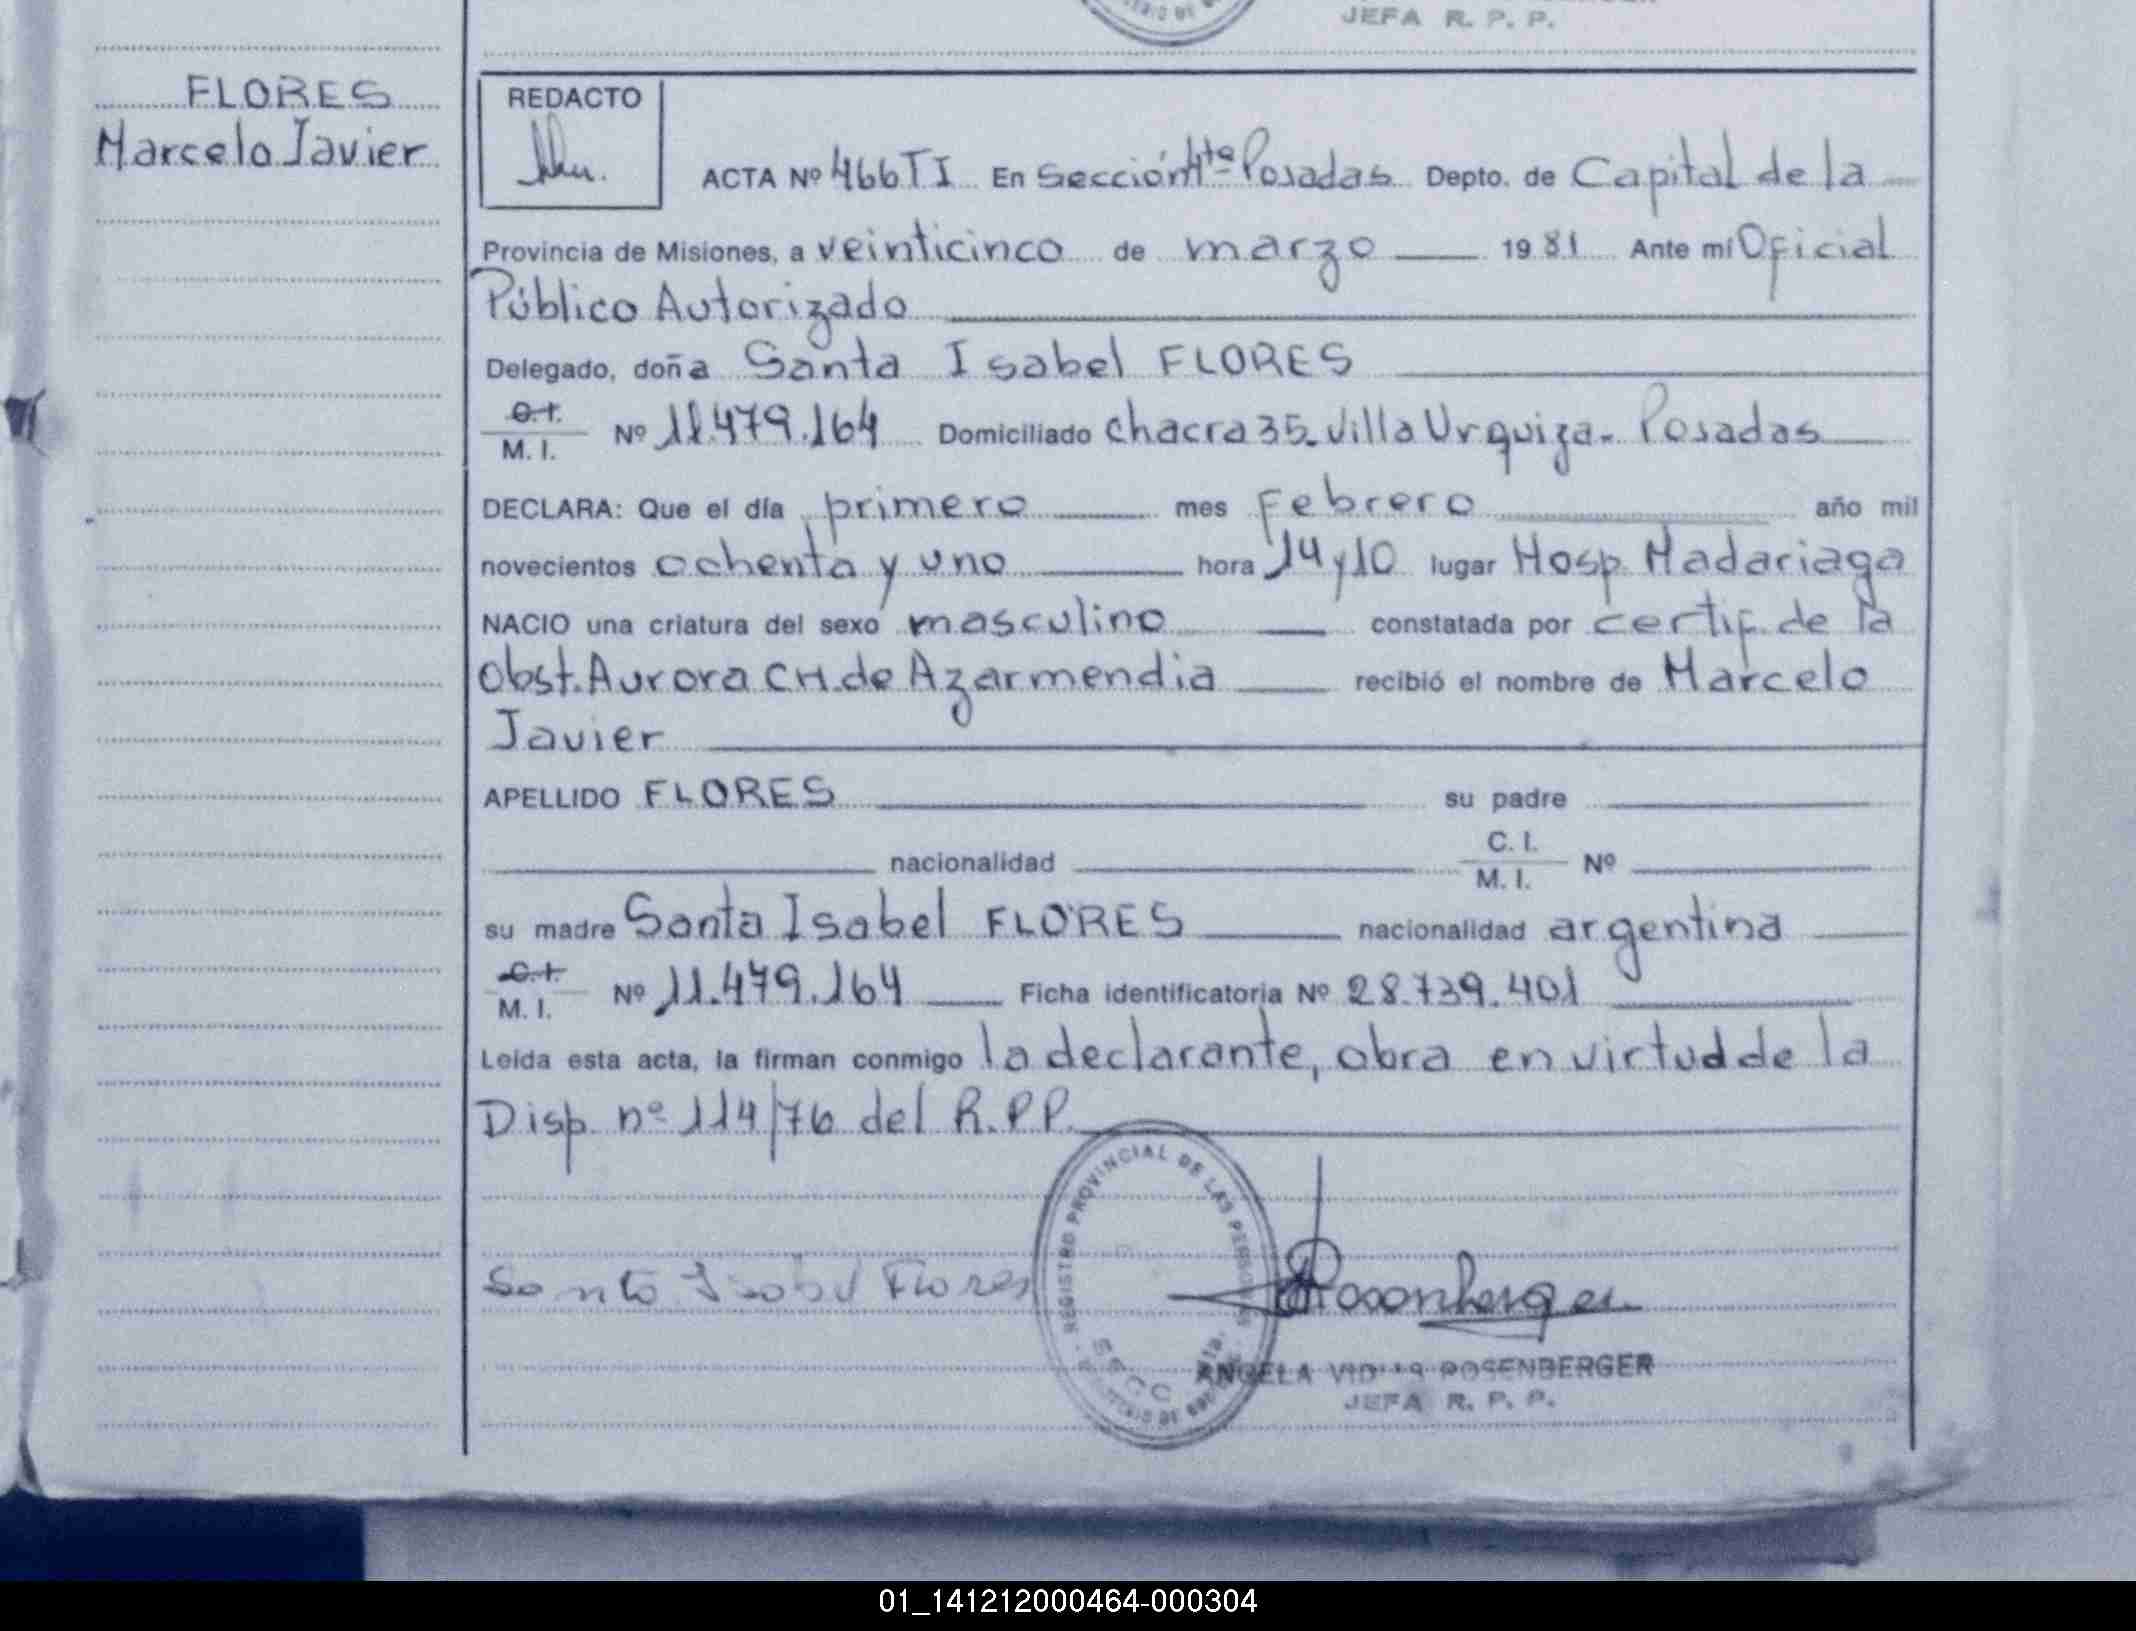 JEFA R. P. P.
FLORES
Marcelo Javier
REDACTO
ACTA Nº 466 T I En Sección 4ta Posadas Depto. de Capital de la
Provincia de Misiones, a veinticinco de marzo 1981 Ante mí Oficial
Público Autorizado
Delegado, doña Santa Isabel FLORES
C.I.
M. I. Nº 11.479.164 Domiciliado chacra 35. Villa Urquiza - Posadas
DECLARA: Que el día primero mes Febrero año mil
novecientos ochenta y uno hora 14 y 10 lugar Hosp. Madariaga
NACIO una criatura del sexo masculino constatada por certif. de la
Obst. Aurora CH. de Azarmendia recibió el nombre de Marcelo
Javier
APELLIDO FLORES su padre
nacionalidad C. I.
M. I. Nº
su madre Santa Isabel FLORES nacionalidad argentina
C.I.
M. I. Nº 11.479.164 Ficha identificatoria Nº 28.739.401
Leída esta acta, la firman conmigo la declarante, obra en virtud de la
Disp. nº 114/76 del R.P.P.
REGISTRO PROVINCIAL DE LAS PERSONAS
Santa Isabel Flores
Rosenberger
ANGELA ROSENBERGER
JEFA R. P. P.
01_141212000464-000304